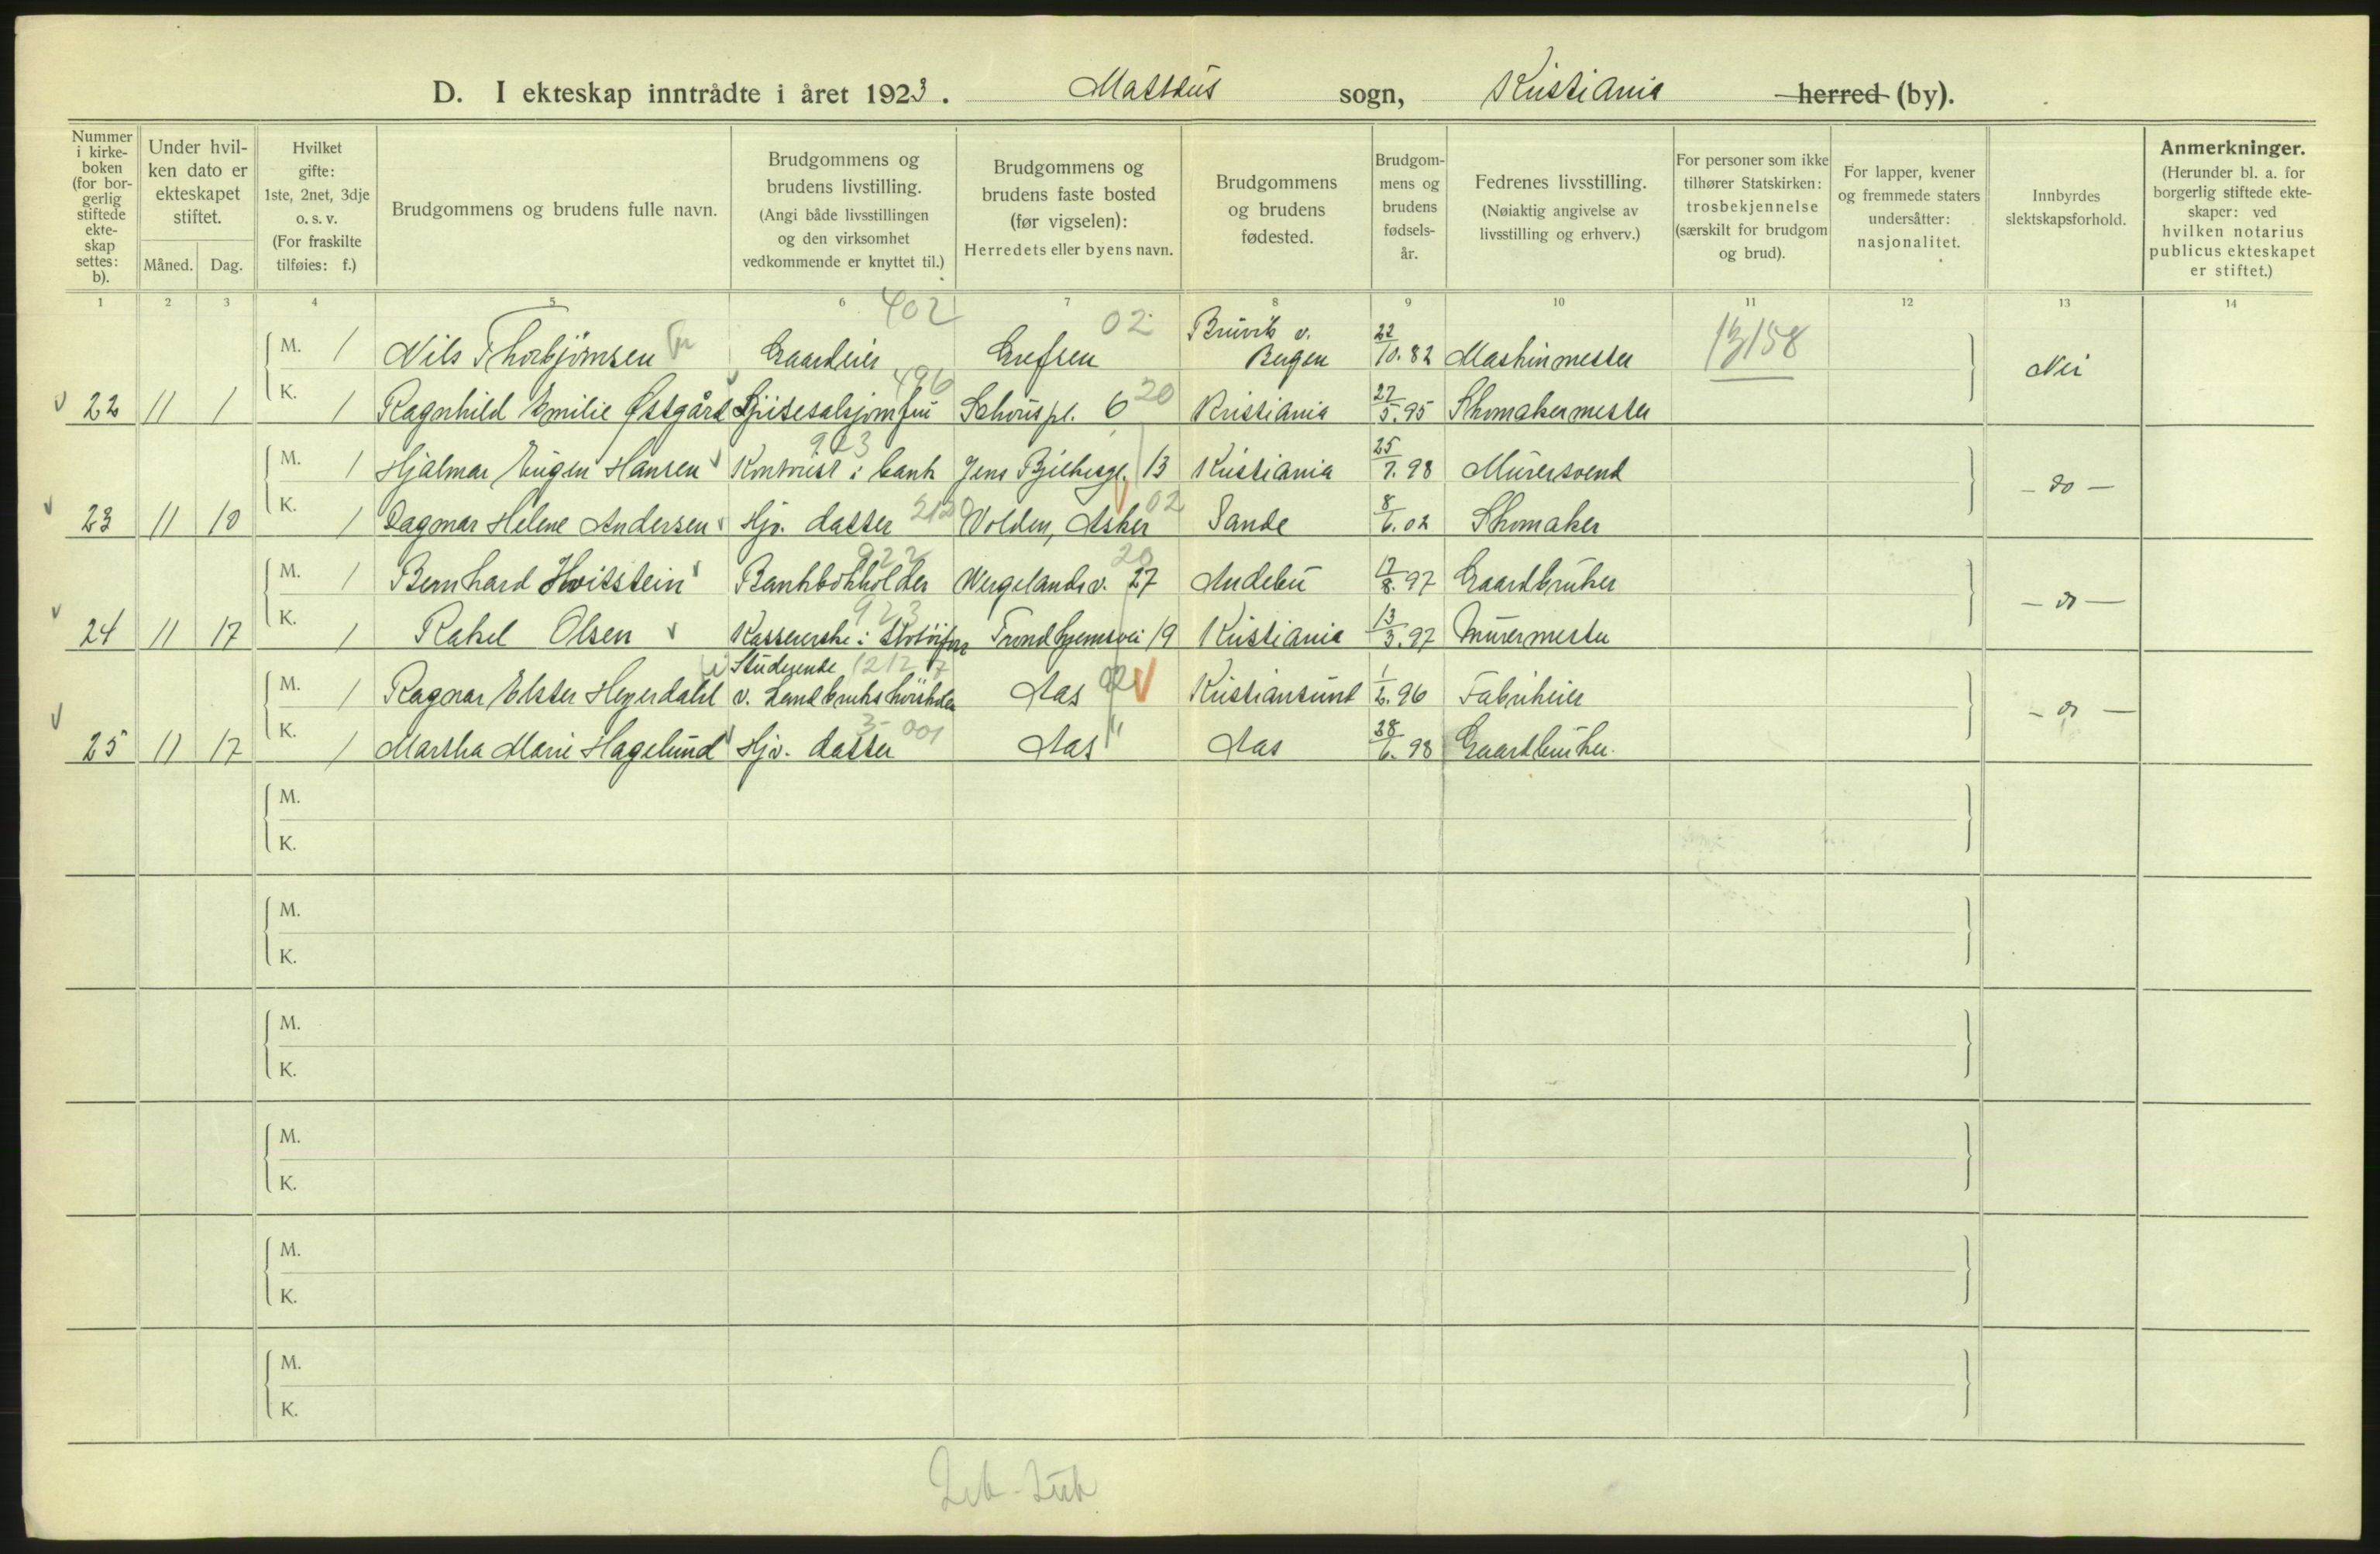 D. I ekteskap inntrådte i året 1923. Mattæus sogn, Kristiania herred (by).
Nummer i kirke-boken (for bor-gerlig stiftede ekte-skap settes: b).
Under hvil-ken dato er ekteskapet stiftet.
Måned. Dag.
Hvilket gifte: 1ste, 2net, 3dje o. s. v. (For fraskilte tilføies: f.)
Brudgommens og brudens fulle navn.
Brudgommens og brudens livstilling. (Angi både livsstillingen og den virksomhet vedkommende er knyttet til.)
Brudgommens og brudens faste bosted (før vigselen): Herredets eller byens navn.
Brudgommens og brudens fødested.
Brudgom-mens og brudens fødsels-år.
Fedrenes livsstilling. (Nøiaktig angivelse av livsstilling og erhverv.)
For personer som ikke tilhører Statskirken: trosbekjennelse (særskilt for brudgom og brud).
For lapper, kvener og fremmede staters undersåtter: nasjonalitet.
Innbyrdes slektskapsforhold.
Anmerkninger. (Herunder bl. a. for borgerlig stiftede ekte-skaper: ved hvilken notarius publicus ekteskapet er stiftet.)
1 2 3 4 5 6 7 8 9 10 11 12 13 14
402 02
M. 1 Nils Thorbjørnsen Gaardeier Grefsen Bruvik v. Bergen 22/10.82 Maskinmester 13/158 Nei
496 20
22 11 1 K. 1 Ragnhild Emilie Østgård Spisesalsjomfru Schouspl. 6 Kristiania 27/5.95 Skomakermester
923
M. 1 Hjalmar Eugen Hansen Kontorist i bank Jens Bjelkesgt. 13 Kristiania 25/7.98 Murersvend - do -
212 02
23 11 10 K. 1 Dagmar Helene Andersen Hjv. datter Volden, Asker Sande 8/6.02 Skomaker
922 20
M. 1 Bernhard Hvitstein Bankbokholder Wergelandsv. 27 Andebu 17/8.97 Gaardbruker - do -
923
24 11 17 K. 1 Rakel Olsen Kasserske i Trondhjemsvei 19 Kristiania 13/3.97 Murermester
Studerende 1212
M. 1 Ragnar Elster Heyerdahl v. Landbrukshøiskolen Aas 02 Kristiansund 1/2.96 Fabrikeier - do -
001
25 11 17 K. 1 Martha Marie Hagelund Hjv. datter Aas " Aas 28/6.98 Gaardbruker.
M.
K.
M.
K.
M.
K.
M.
K.
M.
K.
M.
K.